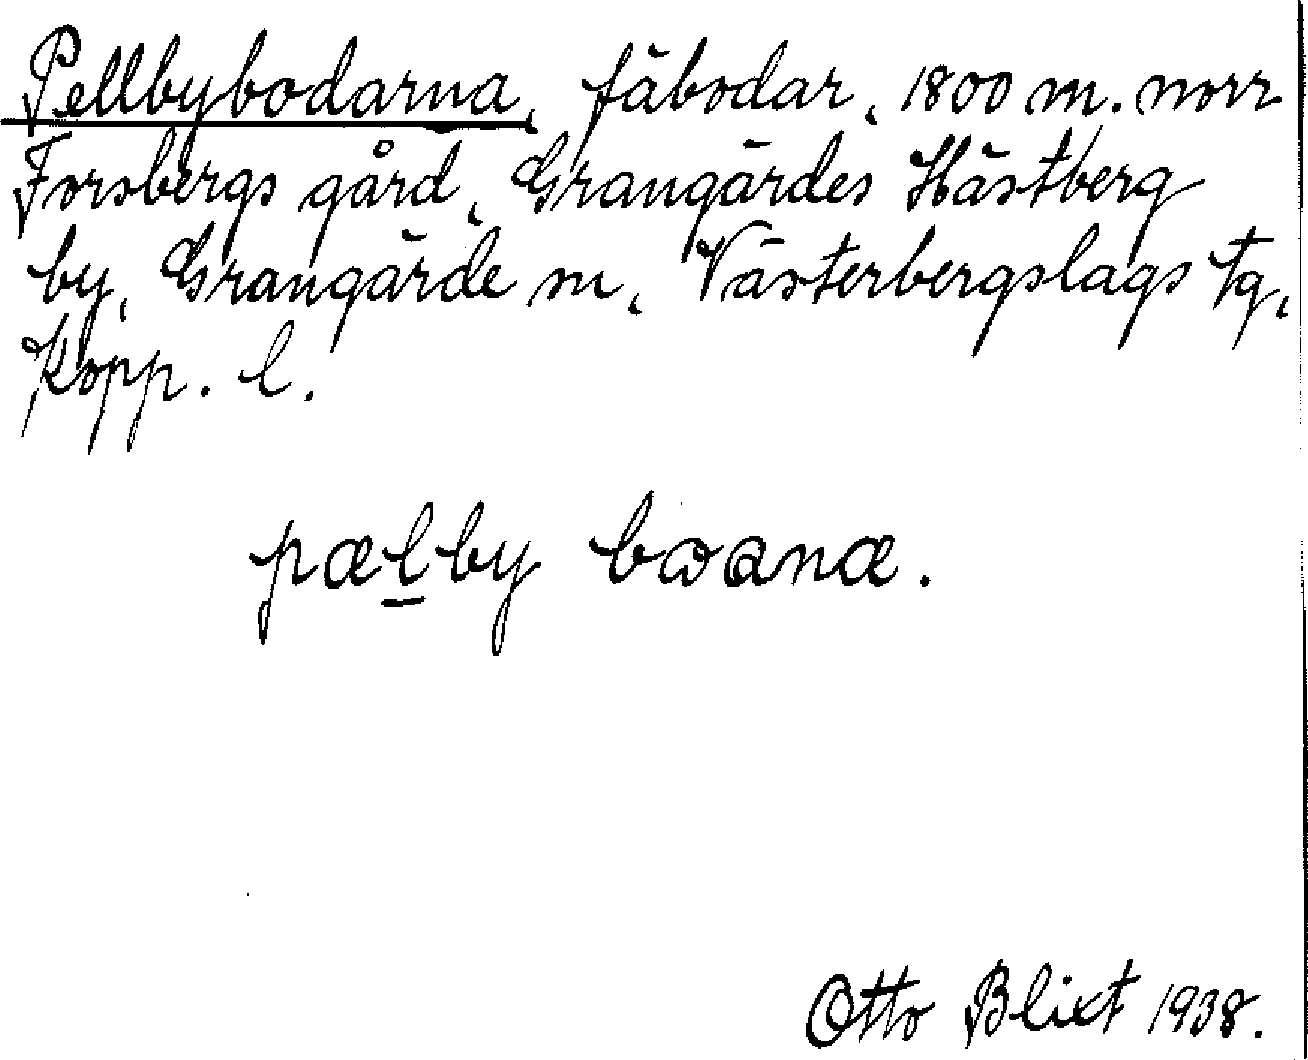 Pellbybodarna, fäbodar, 1800 m. norr
Forsbergs gård, Grangärdes Hästberg
by, Grangärde sn, Västerbergslags tg,
Kopp. l.
pælby bɷanæ.
Otto Blixt 1938.